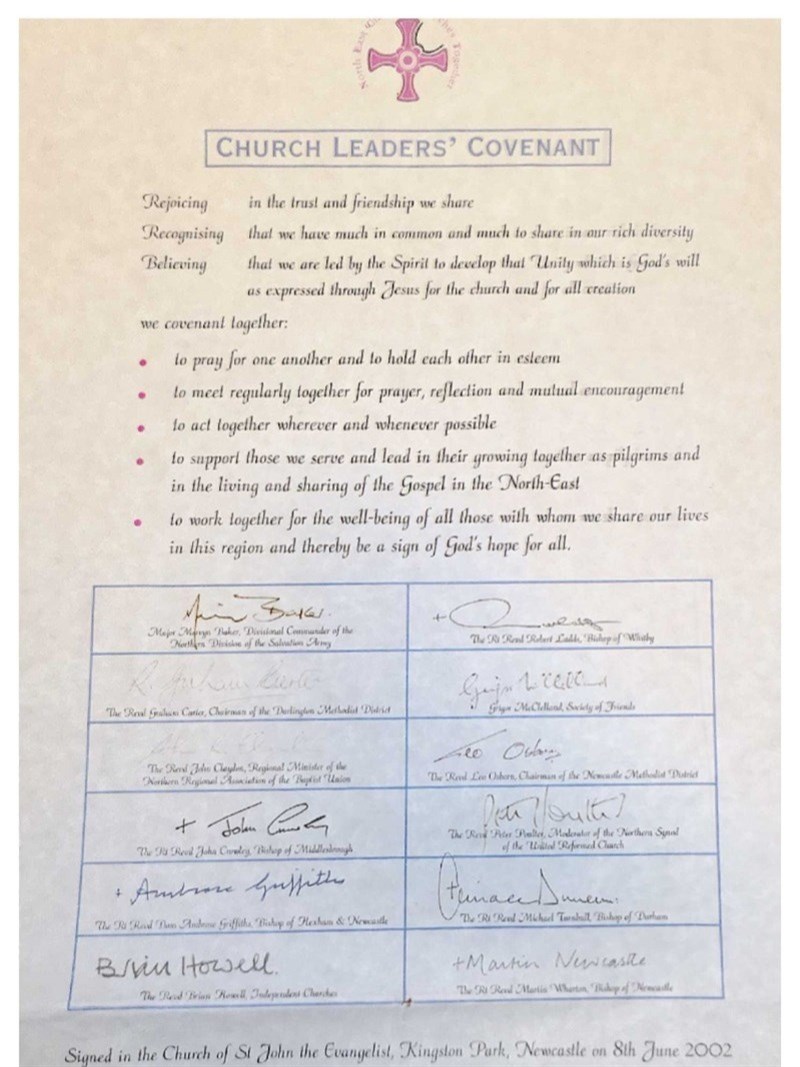 North East
Together
CHURCH LEADERS' COVENANT
Rejoicing in the trust and friendship we share
Recognising that we have much in common and much to share in our rich diversity
Believing that we are led by the Spirit to develop that Unity which is God's will
as expressed through Jesus for the church and for all creation
we covenant together:
• to pray for one another and to hold each other in esteem
• to meet regularly together for prayer, reflection and mutual encouragement
• to act together wherever and whenever possible
• to support those we serve and lead in their growing together as pilgrims and
in the living and sharing of the Gospel in the North-East
• to work together for the well-being of all those with whom we share our lives
in this region and thereby be a sign of God's hope for all.
Baker.
Major Mervyn Baker, Divisional Commander of the
Northern Division of the Salvation Army
+
The Rt Revd Robert Ladds, Bishop of Whitby
R. Graham Carter
The Revd Graham Carter, Chairman of the Darlington Methodist District
Grigor McClelland
Grigor McClelland, Society of Friends
The Revd John Claydon, Regional Minister of the
Northern Regional Association of the Baptist Union
Leo Osborn
The Revd Leo Osborn, Chairman of the Newcastle Methodist District
+ John Crowley
The Rt Revd John Crowley, Bishop of Middlesbrough
Peter Poulter
The Revd Peter Poulter, Moderator of the Northern Synod
of the United Reformed Church
+ Ambrose Griffiths
The Rt Revd Dom Ambrose Griffiths, Bishop of Hexham & Newcastle
The Rt Revd Michael Turnbull, Bishop of Durham
Brian Howell.
The Revd Brian Howell, Independent Churches
+Martin Newcastle
The Rt Revd Martin Wharton, Bishop of Newcastle
Signed in the Church of St John the Evangelist, Kingston Park, Newcastle on 8th June 2002